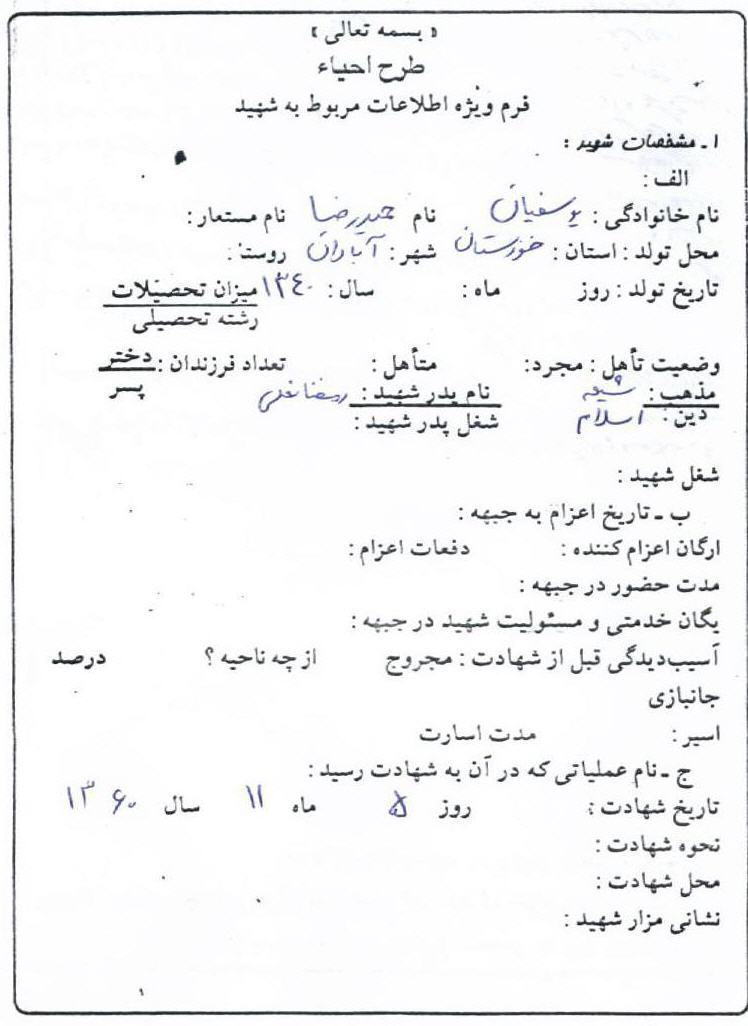 « بسمه تعالی »
طرح احیاء
فرم ویژه اطلاعات مربوط به شهید
۱ ـ مشخصات شهید :
الف :
نام خانوادگی : یوسفیان نام حیدررضا نام مستعار :
محل تولد : استان : خوزستان شهر : آبادان روستا :
تاریخ تولد : روز ماه : سال : ۱۳۴۰ میزان تحصیلات
رشته تحصیلی
وضعیت تأهل : مجرد : متأهل : تعداد فرزندان : دختر
پسر
مذهب : شیعه نام پدر شهید : رمضانعلی
دین : اسلام شغل پدر شهید :
شغل شهید :
ب ـ تاریخ اعزام به جبهه :
ارگان اعزام کننده : دفعات اعزام :
مدت حضور در جبهه :
یگان خدمتی و مسئولیت شهید در جبهه :
آسیب‌دیدگی قبل از شهادت : مجروج از چه ناحیه ؟ درصد
جانبازی
اسیر : مدت اسارت
ج ـ نام عملیاتی که در آن به شهادت رسید :
تاریخ شهادت : روز ۵ ماه ۱۱ سال ۱۳۶۰
نحوه شهادت :
محل شهادت :
نشانی مزار شهید :